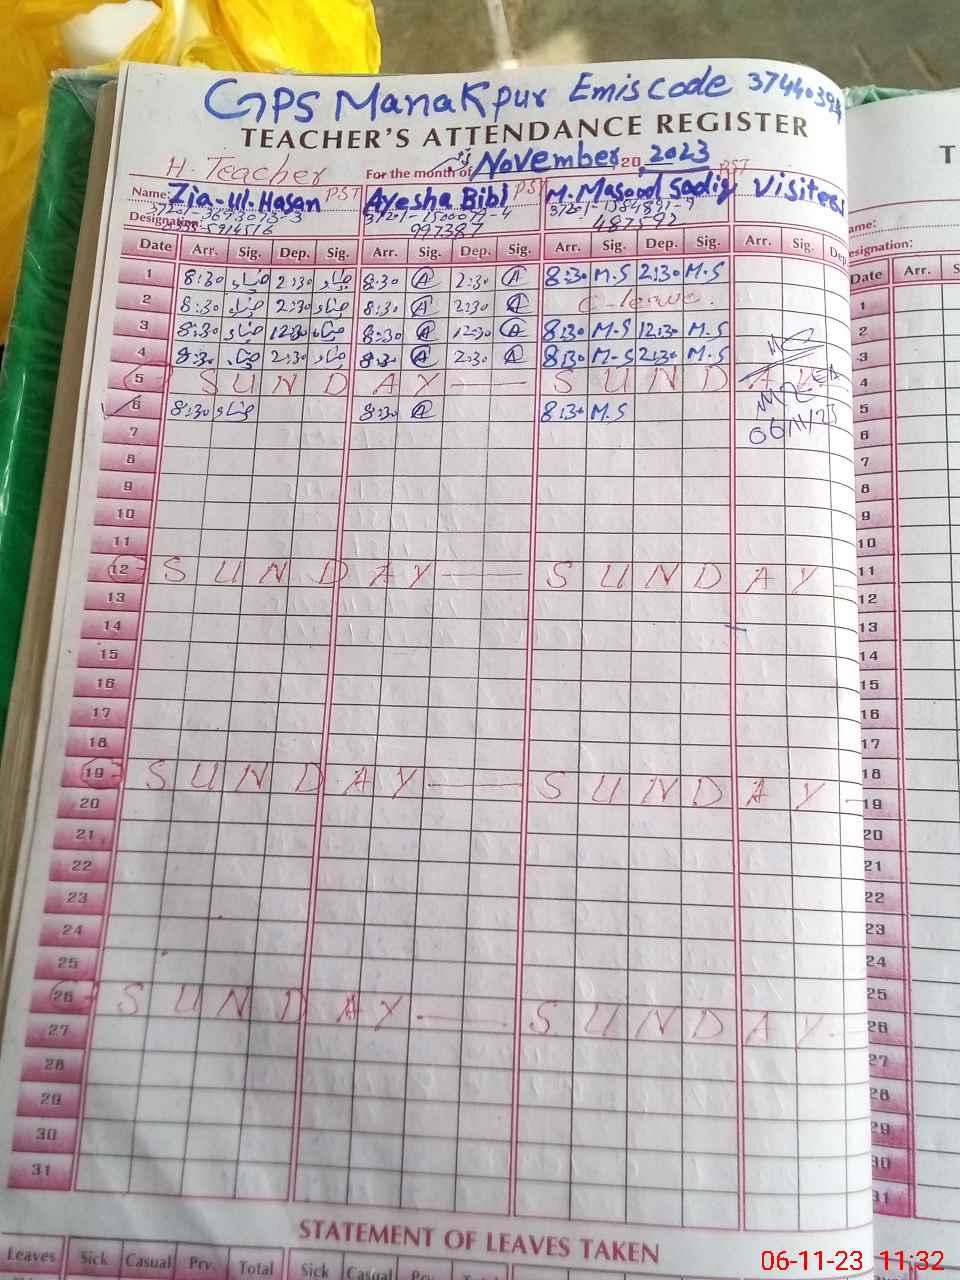 GPS Manakpur Emis Code 37440394
TEACHER'S ATTENDANCE REGISTER
H. Teacher For the month of November 20 2023
Name: Zia-Ul-Hasan PST Ayesha Bibi PST M. Masood Sadiq PST Visiters
Designation:
997387 487592
Date Arr. Sig. Dep. Sig. Arr. Sig. Dep. Sig. Arr. Sig. Dep. Sig. Arr. Sig. Dep.
1 8:30 ضیاء 2:30 ضیاء 8:30 A 2:30 A 8:30 M.S 2:30 M.S
2 8:30 ضیاء 2:30 ضیاء 8:30 A 2:30 A C-leave.
3 8:30 ضیاء 12:30 ضیاء 8:30 A 12:30 A 8:30 M.S 12:30 M.S
4 8:30 ضیاء 2:30 ضیاء 8:30 A 2:30 A 8:30 M.S 2:30 M.S
5 SUNDAY — SUNDAY
6 8:30 ضیاء 8:30 A 8:30 M.S 06/11/23
7
8
9
10
11
12 SUNDAY — SUNDAY
13
14
15
16
17
18
19 SUNDAY — SUNDAY
20
21
22
23
24
25
26 SUNDAY — SUNDAY
27
28
29
30
31
STATEMENT OF LEAVES TAKEN
Leaves Sick Casual Prv. Total Sick Casual
T
ame:
esignation:
Date Arr. S
1
2
3
4
5
6
7
8
9
10
11
12
13
14
15
16
17
18
19
20
21
22
23
24
25
26
27
28
29
30
31
06-11-23 11:32